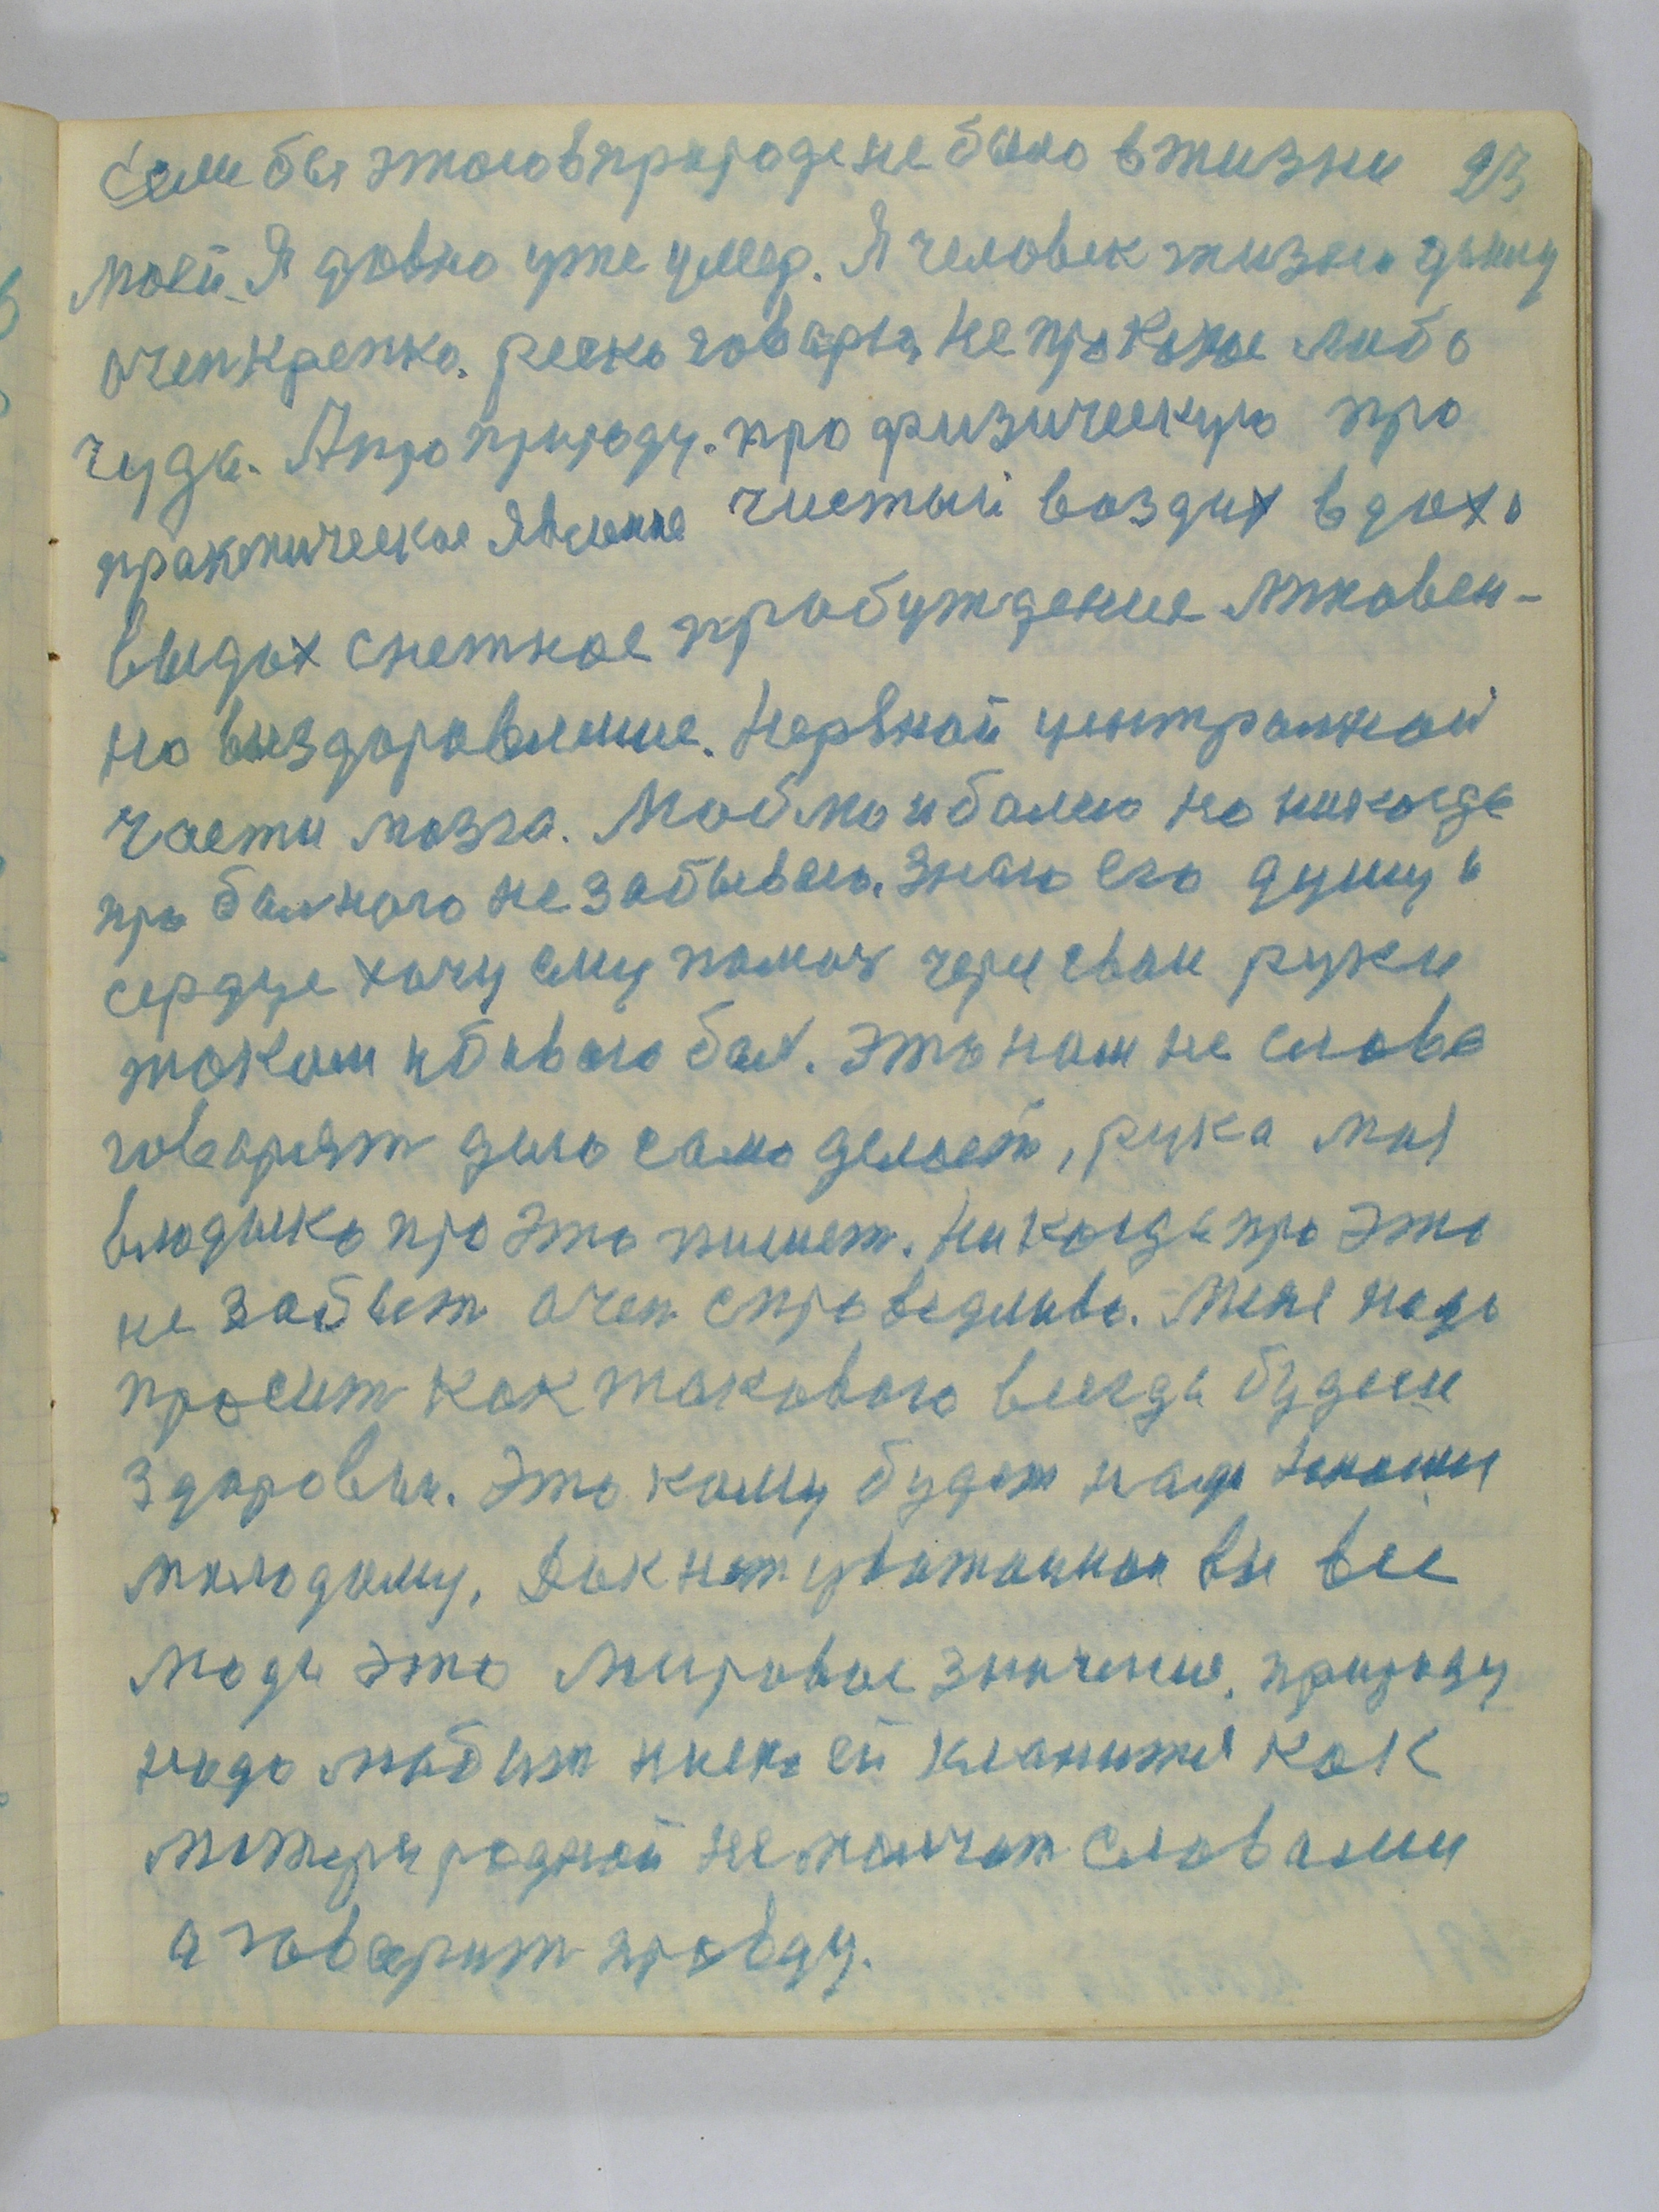 Если бы этого в природе не было в жизни 23
моей. Я довно уже умер. Я человек жизни дышу
очен крепко. реско говорю не про какое либо
чуда. А про природу. про физическую про
практическое явление чистый воздих вдох и
выдох снежное пробуждение мгновен-
но выздоровление. Нервной централной
части мозга. Люблю и болею но никогда
про болного не забываю. Знаю его душу и
сердце хочу ему помоч через свои руки
током убиваю бол. Это нам не слова
говорят дело само делает, рука моя
владыко про это пишет. Никогда про это
не забыт очен справедливо. Меня надо
просит как такового всегда будеш
здоровым. Это кому будет надо
молодому, Так нет уважаемые вы все
люди это мировое значение. природу
надо любит ей кланится как
матери родной не молчат словами
а говорит правду.